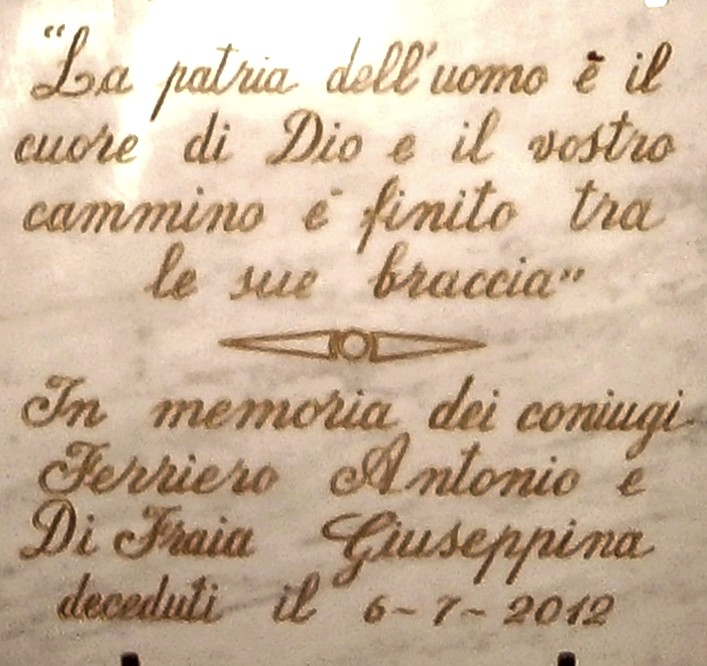 "La patria dell'uomo è il
cuore di Dio e il vostro
cammino è finito tra
le sue braccia"
In memoria dei coniugi
Ferriero Antonio e
Di Fraia Giuseppina
deceduti il 6-7-2012